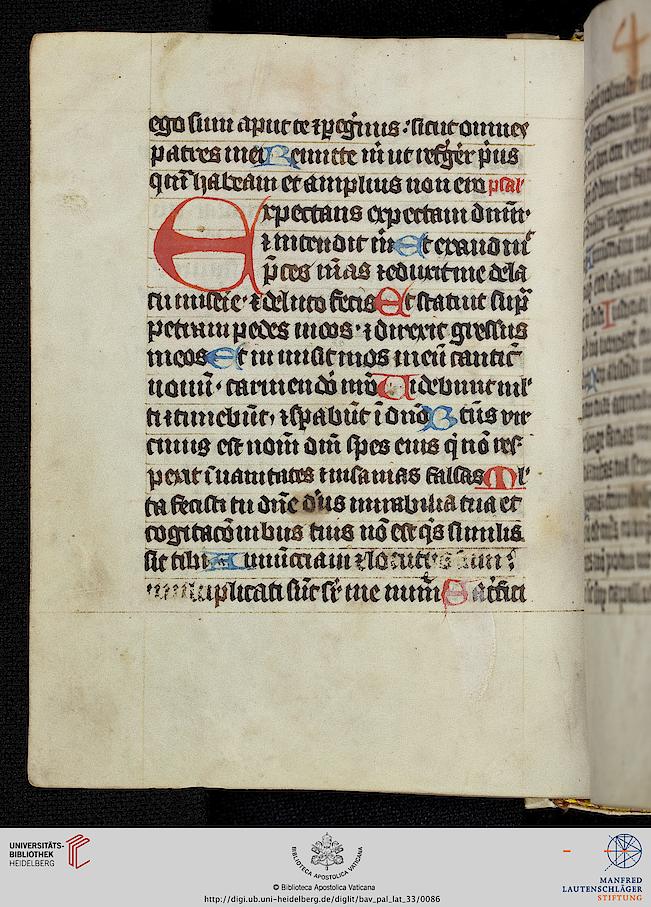 ego sum aput te ⁊ peg̃nus : sicut omnes
patres mei Remitte m̃ ut refg̃er p̃us
q̃m habeam et amplius non ero psal
Expectans expectaui dñm·
⁊ intendit m̃ Et exaudiui
p̃ces m̃as ⁊ eduxit me de la
cu miseĩe· ⁊ de luto fecis Et statuit sup̃
petram pedes meos· ⁊ direxit gressus
meos Et in misit in os meũ canticũ
nouũ· carmen dõ nrõ Uidebunt ml'
ti ⁊ timebũt, ⁊ spabũt ĩ dñõ Btũs vir
cuius est nom̃ dñi spes eius q̃ nõ res
pexit ĩ uanitates ⁊ insanias falsas Ml'
ta fecisti tu dñe d'us mirabilia tua et
cogitacõnibus tuis nõ est q̃s similis
sit tibi Anunctiaui ⁊ locutus sum
multiplicati sũt sr̃ me num̃ Sacrifici
4
UNIVERSITÄTS-
BIBLIOTHEK
HEIDELBERG
BIBLIOTECA APOSTOLICA VATICANA
© Biblioteca Apostolica Vaticana
http://digi.ub.uni-heidelberg.de/diglit/bav_pal_lat_33/0086
MANFRED
LAUTENSCHLÄGER
STIFTUNG